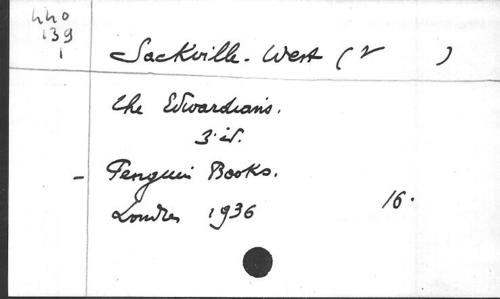 440
139
1
Sackville-West (V )
The Edwardians.
3. éd.
Penguin Books.
Londres 1936 16.